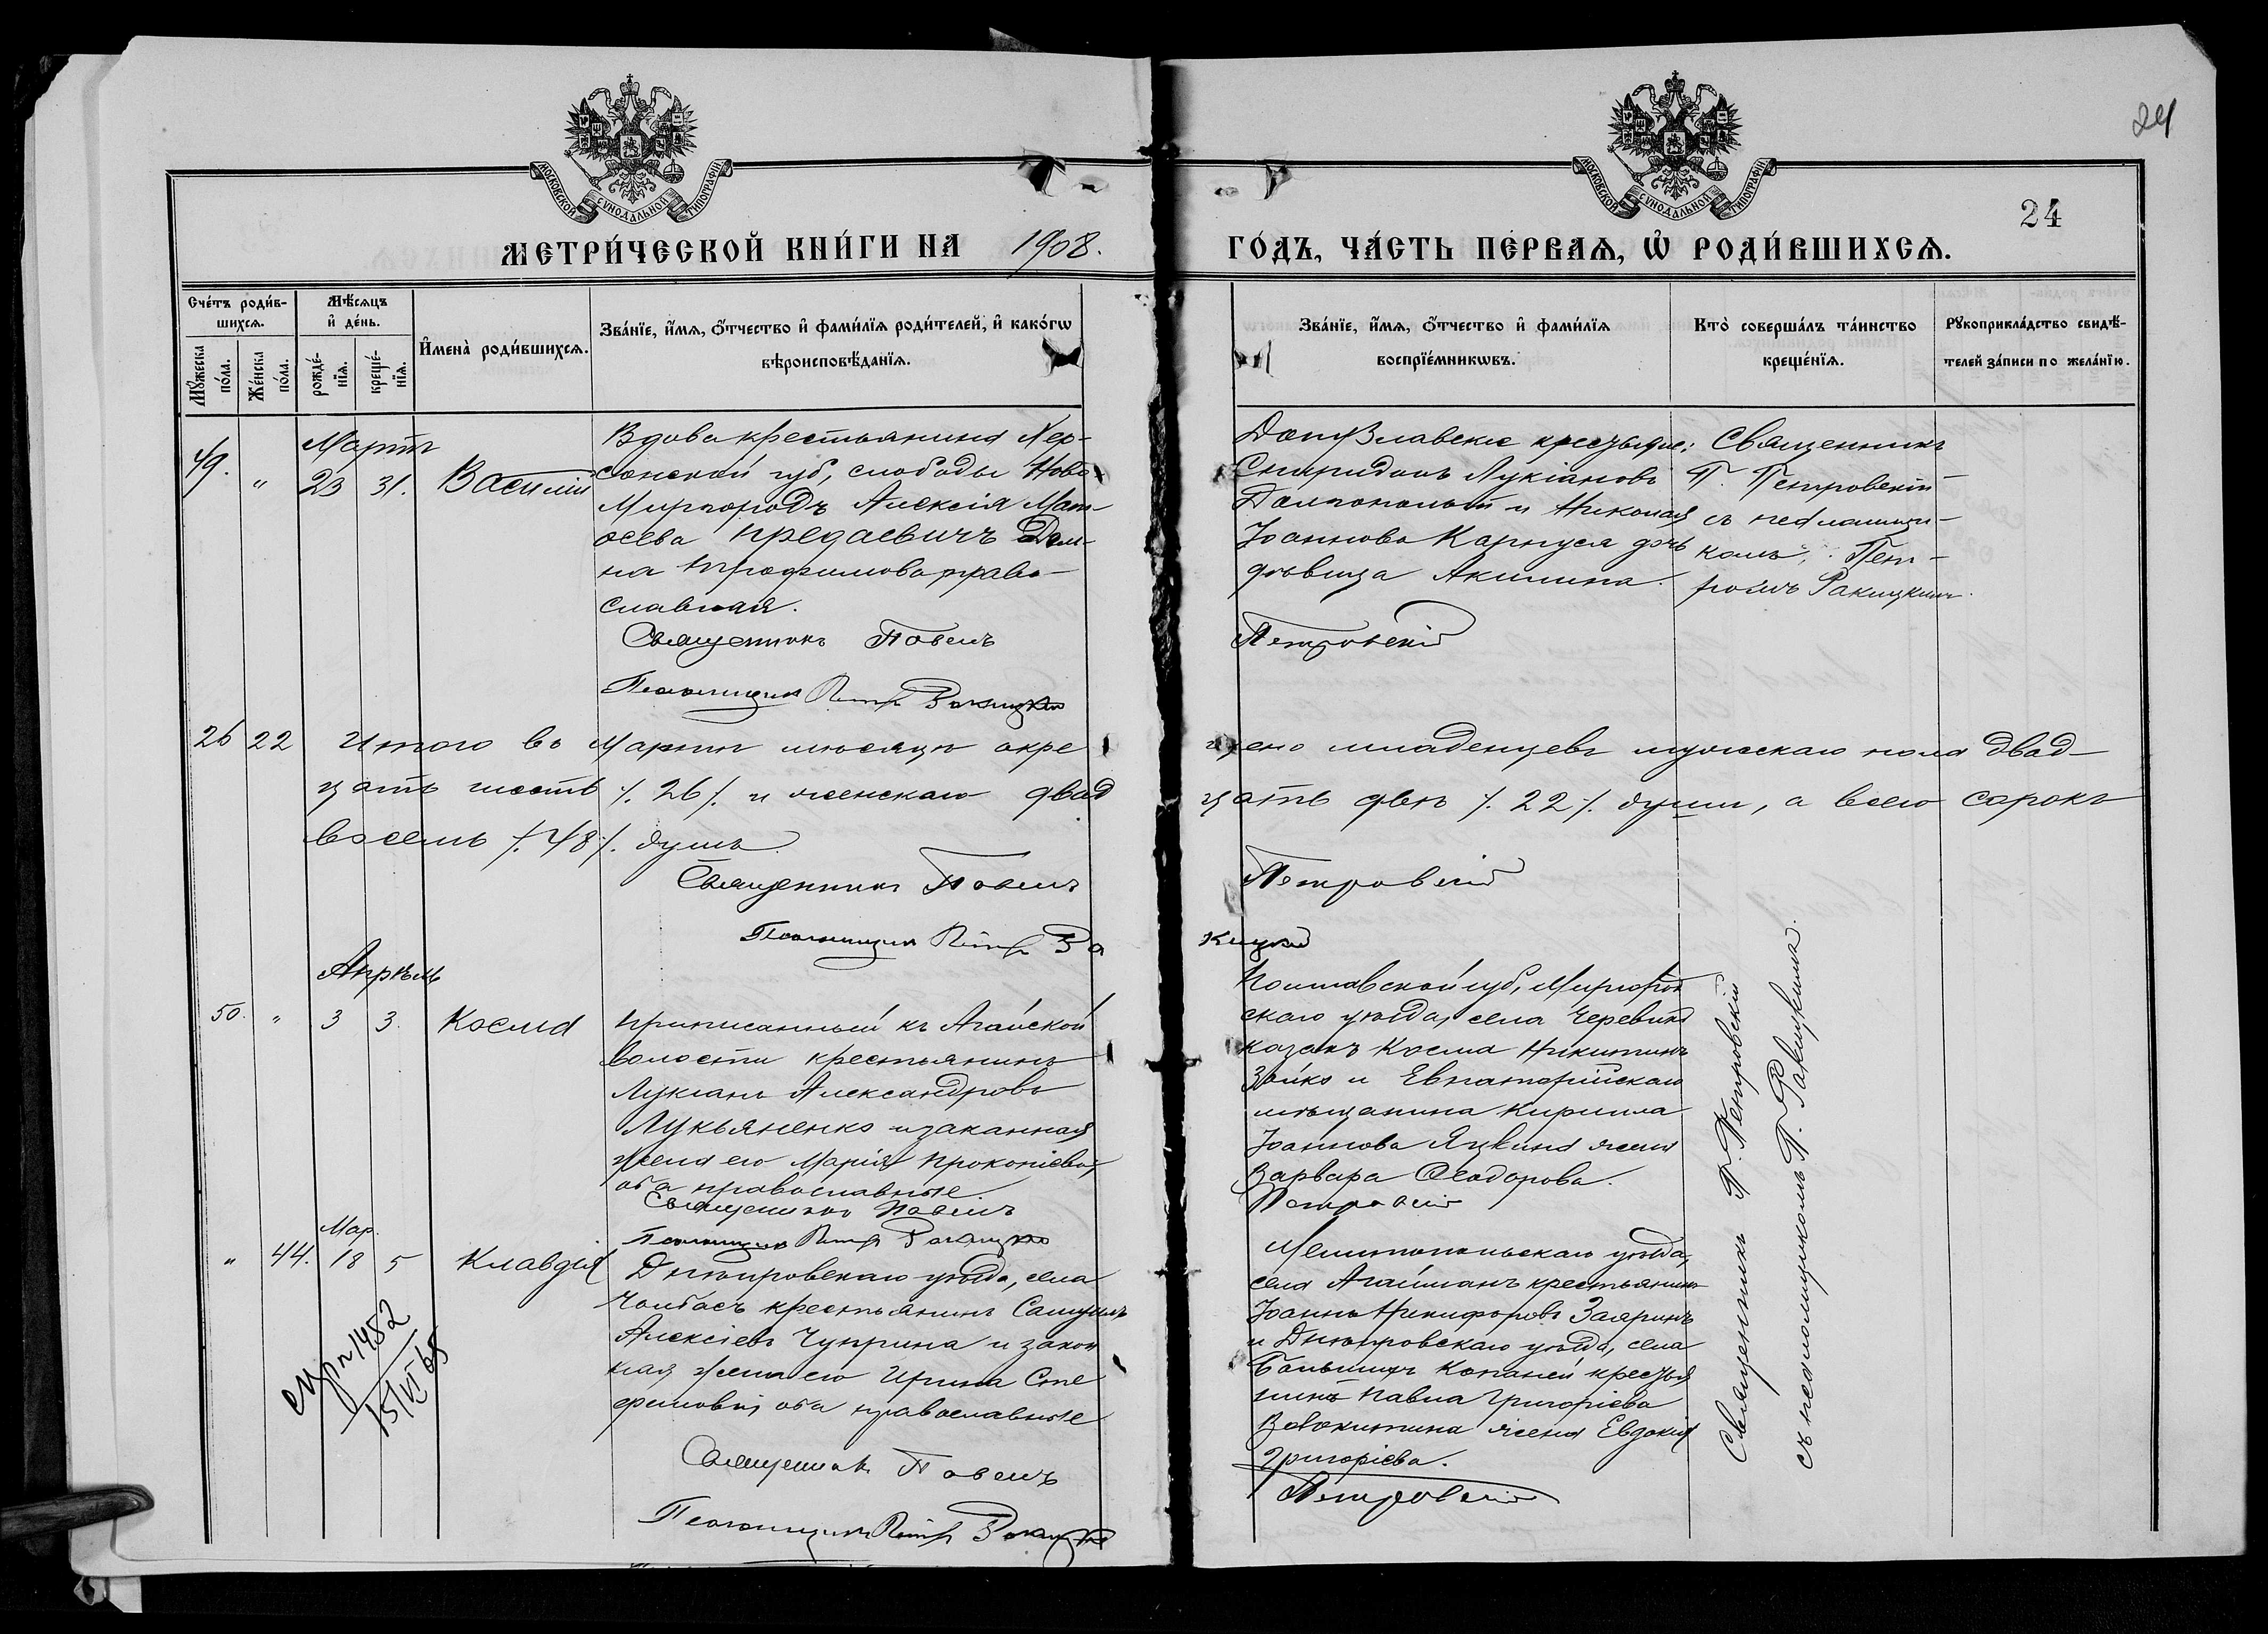 24
МОСКОВСКОЙ СѴНОДАЛЬНОЙ ТИПОГРАФІИ
МОСКОВСКОЙ СѴНОДАЛЬНОЙ ТИПОГРАФІИ
24
МЕТРИ́ЧЕСКОЙ КНИ́ГИ НА 1908.
ГО́ДЪ, ЧА́СТЬ ПЕ́РВАѦ, Ѡ РОДИ́ВШИХСѦ.
Сче́тъ роди́в-
шихсѧ.
Мꙋжеска по́ла.
Же́нска по́ла.
Мѣ́сѧцъ
и де́нь.
рожде́-
нїѧ.
креще́-
нїѧ.
Имена̀ роди́вшихсѧ.
Зва́нїе, и́мѧ, ѻ́тчество и фами́лїѧ роди́телей, и како́гѡ
вѣроисповѣ́данїѧ.
Зва́нїе, и́мѧ, ѻ́тчество и фами́лїѧ
воспрїе́мникѡвъ.
Кто̀ соверша́лъ та́инство
креще́нїѧ.
Рꙋкоприкла́дство свидѣ́-
телей за́писи по жела́нїю.
49. " Мартъ
23 31. Василій
Вдова крестьянина Хер-
сонской губ, слободы Ново-
Миргородъ Алексія Мат-
ѳеева Дом-
на Трофимова право-
славная.
Священникъ Павелъ
Псаломщикъ Петръ Ракицкій
крестьяне:
Спиридонъ Лукіановъ
и Николая
Іоаннова Карпуся дочь
дѣвица Акилина.
Петровскій
Священникъ
П. Петровскій
съ псаломщи-
комъ, Пет-
ромъ Ракицкимъ.
26 22 Итого въ Мартѣ мѣсяцѣ окре
щено младенцевъ мужескаго пола двад-
цать шесть /. 26 /. и женскаго двад
цать двѣ /. 22 /. души, а всего сорокъ
восемь /. 48 /. душъ.
Священникъ Павелъ
Петровскій
Псаломщикъ Петръ Ра
кицкій
Апрѣль
50. " 3 3. Косма
Приписанный къ Агайской
волости крестьянинъ
Лукіанъ Александровъ
Лукьяненко и законная
жена его Марія Прокопіева,
оба православные.
Священникъ Павелъ
Псаломщикъ Петръ Ракицкій
Полтавской губ, Миргород
скаго уѣзда, села Черевки
казакъ Косма Никитинъ
Зайко и Евпаторійскаго
мѣщанина Кирилла
Іоаннова жена
Варвара Ѳеодорова.
Петровскій
" 44. Мар.
18 5 Клавдія
Днѣпровскаго уѣзда, села
Чолбасъ крестьянинъ Самуилъ
Алексіевъ Чуприна и закон
ная жена его Ирина Сте
фанова, оба православные
Священникъ Павелъ
Псаломщикъ Петръ Ракицкій
Мелитопольскаго уѣзда,
села Агайманъ крестьянинъ
Іоаннъ Никифоровъ
и Днѣпровскаго уѣзда, села
Большихъ Копаней крестья
нинъ Павла Григоріева
жена Евдокія
Григоріева.
Петровскій
Священникъ П. Петровскій
съ псаломщикомъ П. Ракицкимъ.
1452
15/VI 65